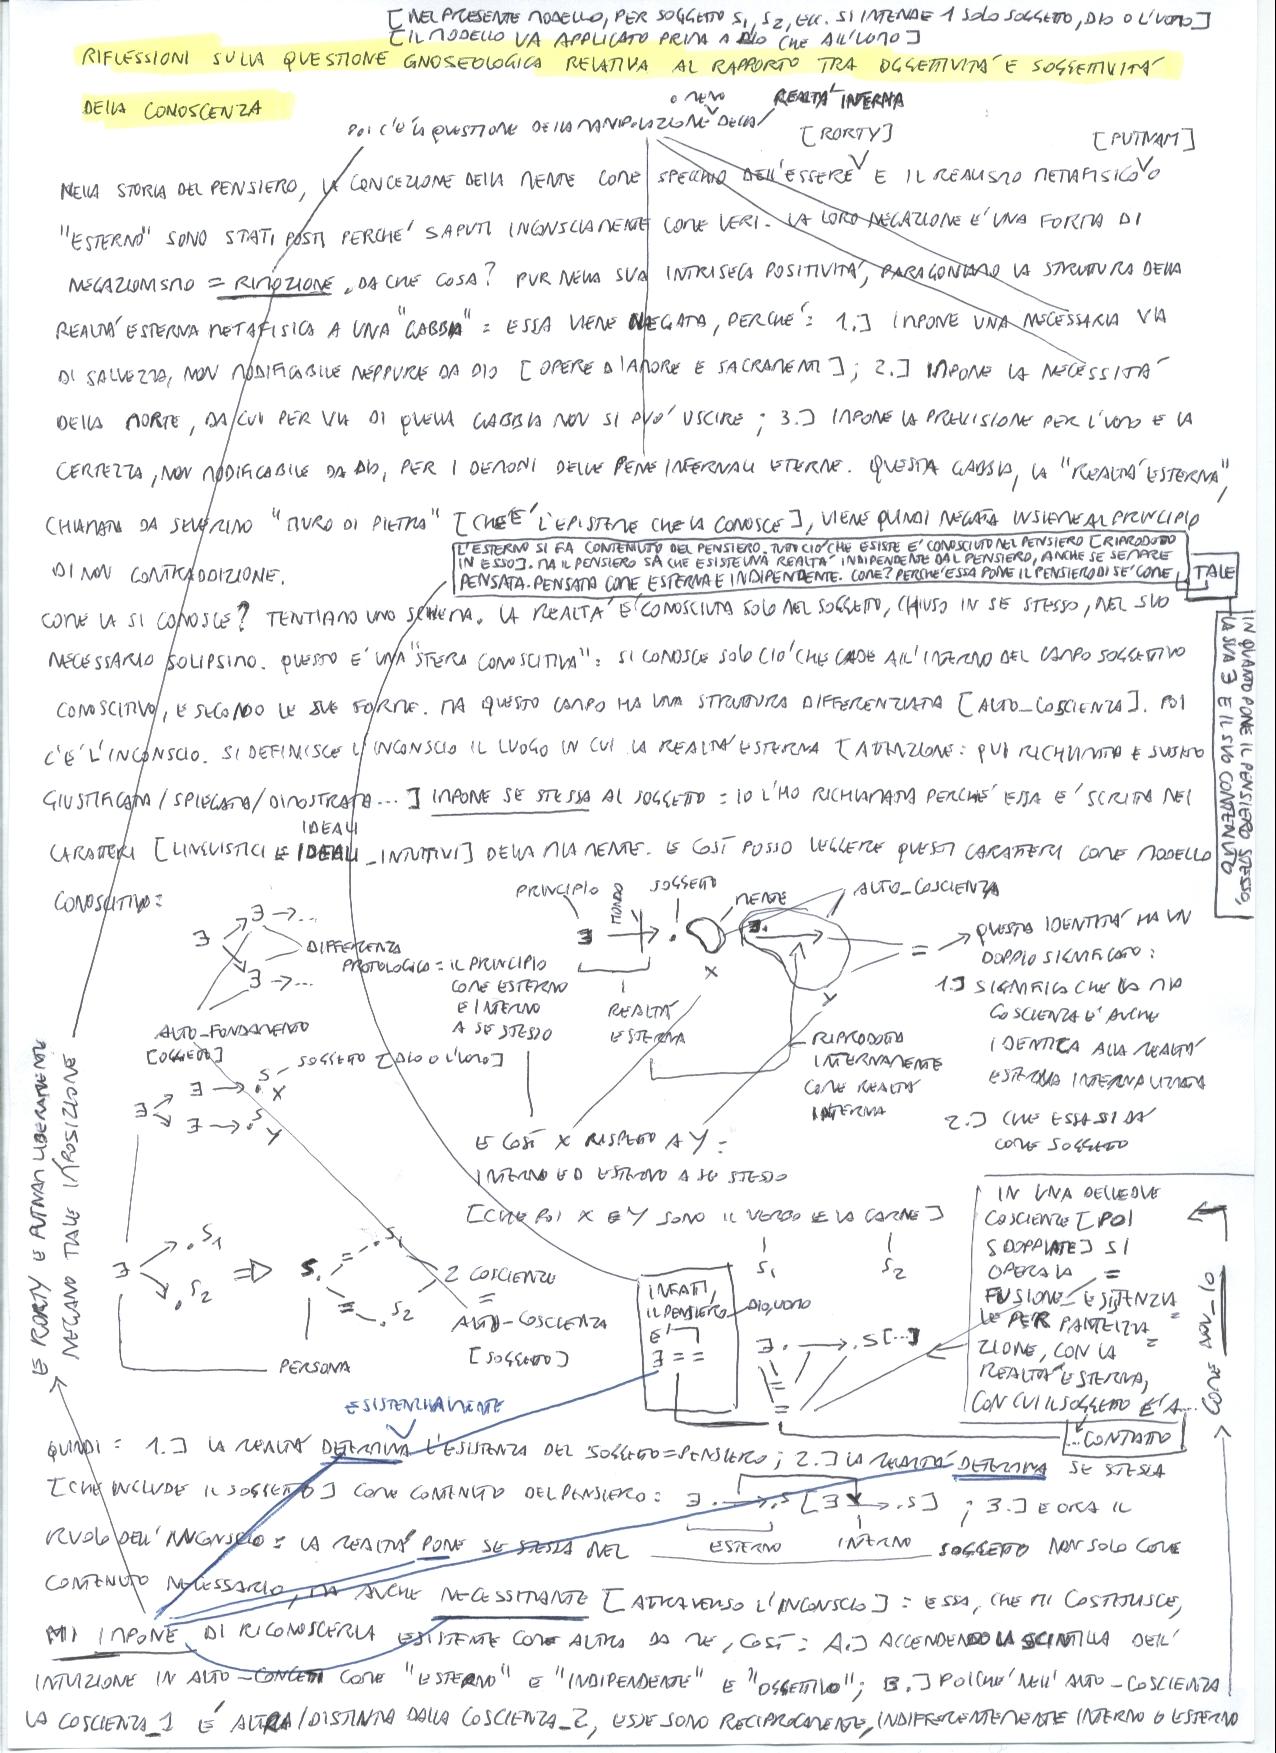 [NEL PRESENTE MODELLO, PER SOGGETTO S1, S2, ECC. SI INTENDE 1 SOLO SOGGETTO, DIO O L'UOMO]
[IL MODELLO VA APPLICATO PRIMA A DIO CHE ALL'UOMO]
RIFLESSIONI SULLA QUESTIONE GNOSEOLOGICA RELATIVA AL RAPPORTO TRA OGGETTIVITÀ E SOGGETTIVITÀ
DELLA CONOSCENZA
O MENO
POI C'È LA QUESTIONE DELLA MANIPOLAZIONE DELLA REALTÀ INTERNA
[RORTY] [PUTNAM]
NELLA STORIA DEL PENSIERO, LA CONCEZIONE DELLA MENTE COME SPECCHIO DELL'ESSERE E IL REALISMO METAFISICO O
"ESTERNO" SONO STATI POSTI PERCHÉ SAPUTI INCONSCIAMENTE COME VERI. LA LORO NEGAZIONE È UNA FORMA DI
NEGAZIONISMO = RIMOZIONE, DA CHE COSA? PUR NELLA SUA INTRISECA POSITIVITÀ, PARAGONIAMO LA STRUTTURA DELLA
REALTÀ ESTERNA METAFISICA A UNA "GABBIA": ESSA VIENE NEGATA, PERCHÉ: 1.] IMPONE UNA NECESSARIA VIA
DI SALVEZZA, NON MODIFICABILE NEPPURE DA DIO [OPERE D'AMORE E SACRAMENTI]; 2.] IMPONE LA NECESSITÀ
DELLA MORTE, DA CUI PER VIA DI QUELLA GABBIA NON SI PUÒ USCIRE; 3.] IMPONE LA PREVISIONE PER L'UOMO E LA
CERTEZZA, NON MODIFICABILE DA DIO, PER I DEMONI DELLE PENE INFERNALI ETERNE. QUESTA GABBIA, LA "REALTÀ ESTERNA",
CHIAMATA DA SEVERINO "MURO DI PIETRA" [CHE È L'EPISTEME CHE LA CONOSCE], VIENE QUINDI NEGATA INSIEME AL PRINCIPIO
DI NON CONTRADDIZIONE.
L'ESTERNO SI FA CONTENUTO DEL PENSIERO. TUTTO CIÒ CHE ESISTE È CONOSCIUTO NEL PENSIERO [RIPRODOTTO
IN ESSO]. MA IL PENSIERO SA CHE ESISTE UNA REALTÀ INDIPENDENTE DAL PENSIERO, ANCHE SE SEMPRE
PENSATA. PENSATA COME ESTERNA E INDIPENDENTE. COME? PERCHÉ ESSA PONE IL PENSIERO DI SÉ COME TALE
IN QUANTO PONE IL PENSIERO STESSO,
LA SUA Ǝ E IL SUO CONTENUTO
COME LA SI CONOSCE? TENTIAMO UNO SCHEMA. LA REALTÀ È CONOSCIUTA SOLO NEL SOGGETTO, CHIUSO IN SE STESSO, NEL SUO
NECESSARIO SOLIPSISMO. QUESTO È UNA "SFERA CONOSCITIVA": SI CONOSCE SOLO CIÒ CHE CADE ALL'INTERNO DEL CAMPO SOGGETTIVO
CONOSCITIVO, E SECONDO LE SUE FORME. MA QUESTO CAMPO HA UNA STRUTTURA DIFFERENZIATA [AUTO_COSCIENZA]. POI
C'È L'INCONSCIO. SI DEFINISCE L'INCONSCIO IL LUOGO IN CUI LA REALTÀ ESTERNA [ATTENZIONE: QUI RICHIAMATA E SUBITO
GIUSTIFICATA / SPIEGATA / DIMOSTRATA...] IMPONE SE STESSA AL SOGGETTO = IO L'HO RICHIAMATA PERCHÉ ESSA È SCRITTA NEI
IDEALI
CARATTERI [LINGUISTICI E IDEALI_INTUITIVI] DELLA MIA MENTE. E COSÌ POSSO LEGGERE QUESTI CARATTERI COME MODELLO
CONOSCITIVO:
Ǝ Ǝ →... Ǝ →...
DIFFERENZA
PROTOLOGICO = IL PRINCIPIO
COME ESTERNO
E INTERNO
A SE STESSO
AUTO_FONDAMENTO
[OGGETTO]
SOGGETTO [DIO O L'UOMO]
Ǝ Ǝ → .S X
Ǝ → .S Y
PRINCIPIO MONDO SOGGETTO MENTE AUTO_COSCIENZA
Ǝ → . X Ǝ. → Y =
REALTÀ
ESTERNA
RIPRODOTTA
INTERNAMENTE
COME REALTÀ
INTERNA
QUESTA IDENTITÀ HA UN
DOPPIO SIGNIFICATO:
1.] SIGNIFICA CHE LA MIA
COSCIENZA È ANCHE
IDENTICA ALLA REALTÀ
ESTERNA INTERNALIZZATA
2.] CHE ESSA SI DÀ
COME SOGGETTO
E COSÌ X RISPETTO A Y:
INTERNO ED ESTERNO A SE STESSO
[CHE POI X E Y SONO IL VERBO E LA CARNE]
S1 S2
Ǝ .S1 .S2 ⇒ S. = .S1 = .S2
2 COSCIENZE
=
AUTO_COSCIENZA
[SOGGETTO]
PERSONA
INFATTI,
IL PENSIERO
È
Ǝ = =
DIO, UOMO
Ǝ. → .S [...]
IN UNA DELLE DUE
COSCIENZE [POI
SDOPPIATE] SI
OPERA LA =
FUSIONE_ESISTENZIA
LE PER PARTECIPA
ZIONE, CON LA
REALTÀ ESTERNA,
CON CUI IL SOGGETTO È A...
...CONTATTO
COME NON_IO
E RORTY E PUTNAM LIBERAMENTE
NEGANO TALE IMPOSIZIONE
ESISTENZIALMENTE
QUINDI = 1.] LA REALTÀ DETERMINA L'ESISTENZA DEL SOGGETTO=PENSIERO; 2.] LA REALTÀ DETERMINA SE STESSA
[CHE INCLUDE IL SOGGETTO] COME CONTENUTO DEL PENSIERO: Ǝ. → .S [Ǝ. → .S] ; 3.] E ORA IL
ESTERNO INTERNO
RUOLO DELL'INCONSCIO: LA REALTÀ PONE SE STESSA NEL SOGGETTO NON SOLO COME
CONTENUTO NECESSARIO, MA ANCHE NECESSITANTE [ATTRAVERSO L'INCONSCIO] = ESSA, CHE MI COSTITUISCE,
MI IMPONE DI RICONOSCERLA ESISTENTE COME ALTRO DA ME, COSÌ: A.] ACCENDENDO LA SCINTILLA DELL'
INTUIZIONE IN ALTO_CONCETTI COME "ESTERNO" E "INDIPENDENTE" E "OGGETTIVO"; B.] POICHÉ NELL'AUTO_COSCIENZA
LA COSCIENZA_1 È ALTRA/DISTINTA DALLA COSCIENZA_2, ESSE SONO RECIPROCAMENTE, INDIFFERENTEMENTE INTERNO O ESTERNO